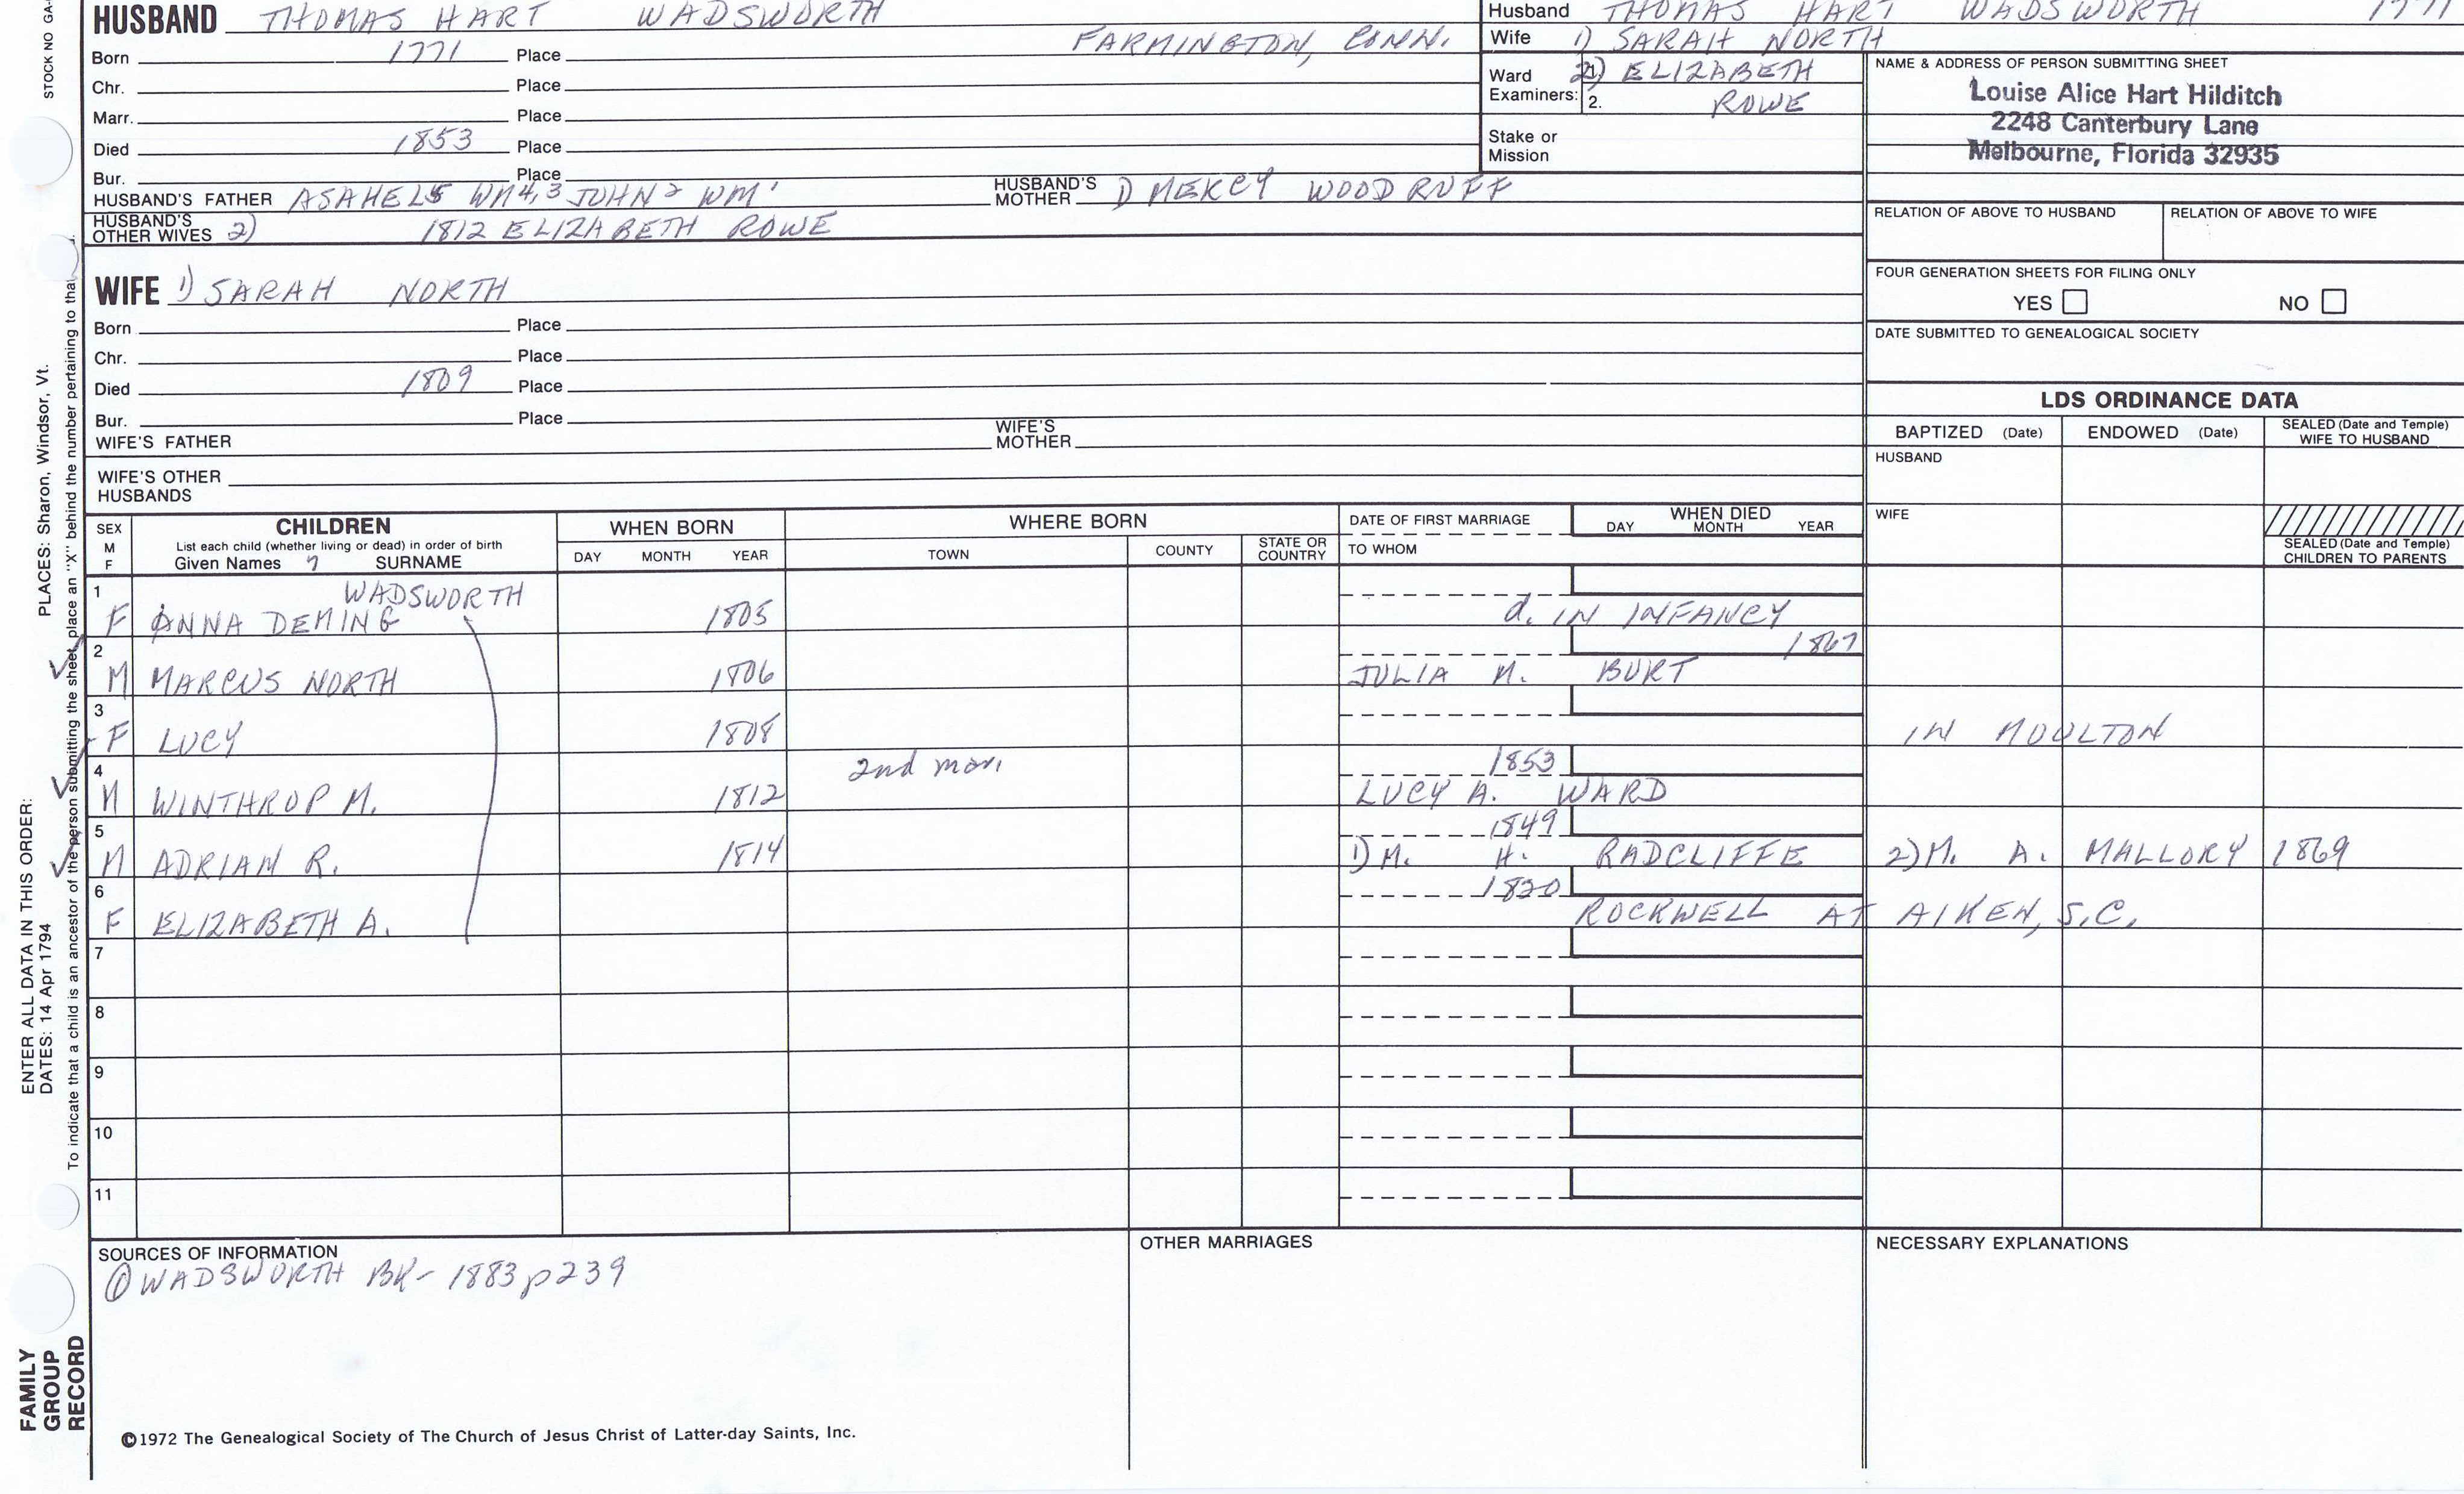 STOCK NO GA-
HUSBAND THOMAS HART WADSWORTH
Born 1771 Place FARMINGTON, CONN.
Chr. Place
Marr. Place
Died 1853 Place
Bur. Place
HUSBAND'S FATHER ASAHEL5 WM4,3 JOHN2 WM1 HUSBAND'S MOTHER 1) MERCY WOODRUFF
HUSBAND'S OTHER WIVES 2) 1812 ELIZABETH ROWE
Husband THOMAS HART WADSWORTH 1771
Wife 1) SARAH NORTH
Ward Examiners: 1. 2) ELIZABETH
2. ROWE
Stake or Mission
NAME & ADDRESS OF PERSON SUBMITTING SHEET
Louise Alice Hart Hilditch
2248 Canterbury Lane
Melbourne, Florida 32935
RELATION OF ABOVE TO HUSBAND RELATION OF ABOVE TO WIFE
FOUR GENERATION SHEETS FOR FILING ONLY
YES NO
DATE SUBMITTED TO GENEALOGICAL SOCIETY
WIFE 1) SARAH NORTH
Born Place
Chr. Place
Died 1809 Place
Bur. Place
WIFE'S FATHER WIFE'S MOTHER
WIFE'S OTHER HUSBANDS
LDS ORDINANCE DATA
BAPTIZED (Date) ENDOWED (Date) SEALED (Date and Temple) WIFE TO HUSBAND
HUSBAND
WIFE
SEALED (Date and Temple) CHILDREN TO PARENTS
SEX M F CHILDREN WHEN BORN WHERE BORN DATE OF FIRST MARRIAGE WHEN DIED
List each child (whether living or dead) in order of birth
Given Names 7 SURNAME DAY MONTH YEAR TOWN COUNTY STATE OR COUNTRY TO WHOM DAY MONTH YEAR
WADSWORTH
1 F ANNA DEMING 1805 d. IN INFANCY
1867
2 M MARCUS NORTH 1806 JULIA M. BURT
3 F LUCY 1808 IN MOULTON
2nd mar. 1853
4 M WINTHROP M. 1812 LUCY A. WARD
1849
5 M ADRIAN R. 1814 1) M. H. RADCLIFFE 2) M. A. MALLORY 1869
1820
6 F ELIZABETH A. ROCKWELL AT AIKEN, S.C.
7
8
9
10
11
SOURCES OF INFORMATION
① WADSWORTH BK- 1883 p239
OTHER MARRIAGES
NECESSARY EXPLANATIONS
©1972 The Genealogical Society of The Church of Jesus Christ of Latter-day Saints, Inc.
FAMILY
GROUP
RECORD
ENTER ALL DATA IN THIS ORDER:
DATES: 14 Apr 1794 PLACES: Sharon, Windsor, Vt.
To indicate that a child is an ancestor of the person submitting the sheet, place an "X" behind the number pertaining to tha